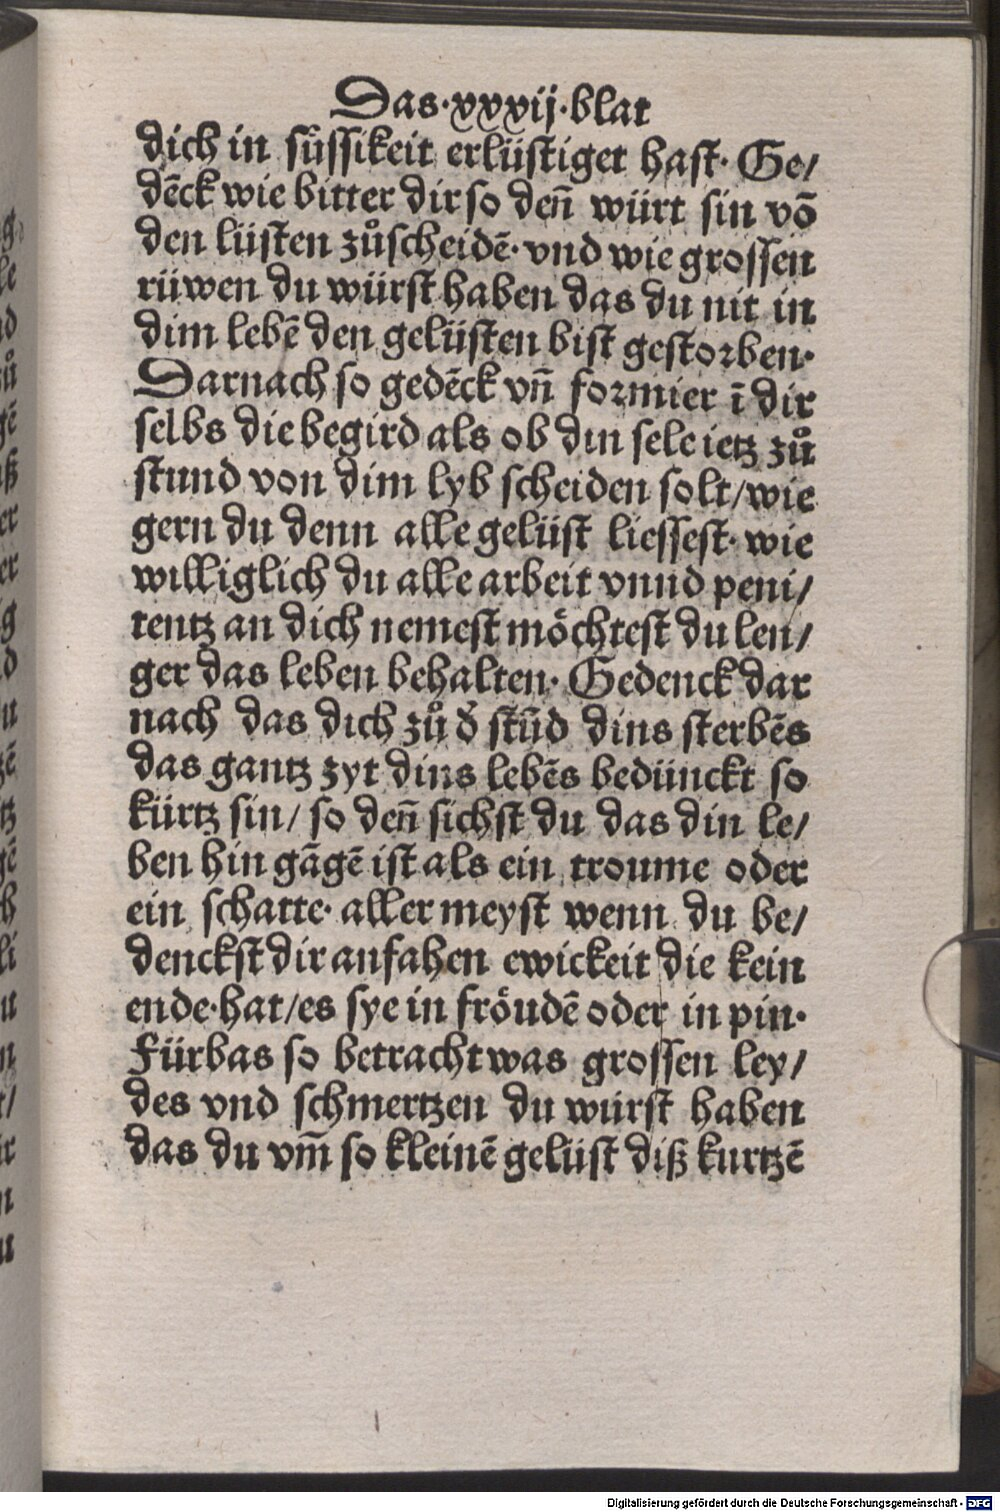 Das·xxxij·blat
dich in süssikeit erlüstiget hast· Ge/
dēck wie bitter dir so deñ würt sin vō
den lüsten zůscheidē· vnd wie grossen
rüwen du würst haben das du nit in
dim lebē den gelüsten bist gestorben·
Darnach so gedēck vñ formier ī dir
selbs die begird als ob din sele ietz zů
stund von dim lyb scheiden solt/wie
gern du denn alle gelüst liessest· wie
williglich du alle arbeit vnnd peni/
tentz an dich nemest möchtest du len/
ger das leben behalten· Gedenck dar
nach das dich zů d' stūd dins sterbēs
das gantz zyt dins lebēs bedünckt so
kürtz sin/ so deñ sichst du das din le/
ben hin gāgē ist als ein troume oder
ein schatte· aller meyst wenn du be/
denckst dir anfahen ewickeit die kein
ende·hat/es sye in fröudē oder in pin·
Fürbas so betracht was grossen ley/
des vnd schmertzen du würst haben
das du vm̄ so kleinē gelüst diß kurtzē
Digitalisierung gefördert durch die Deutsche Forschungsgemeinschaft - DFG